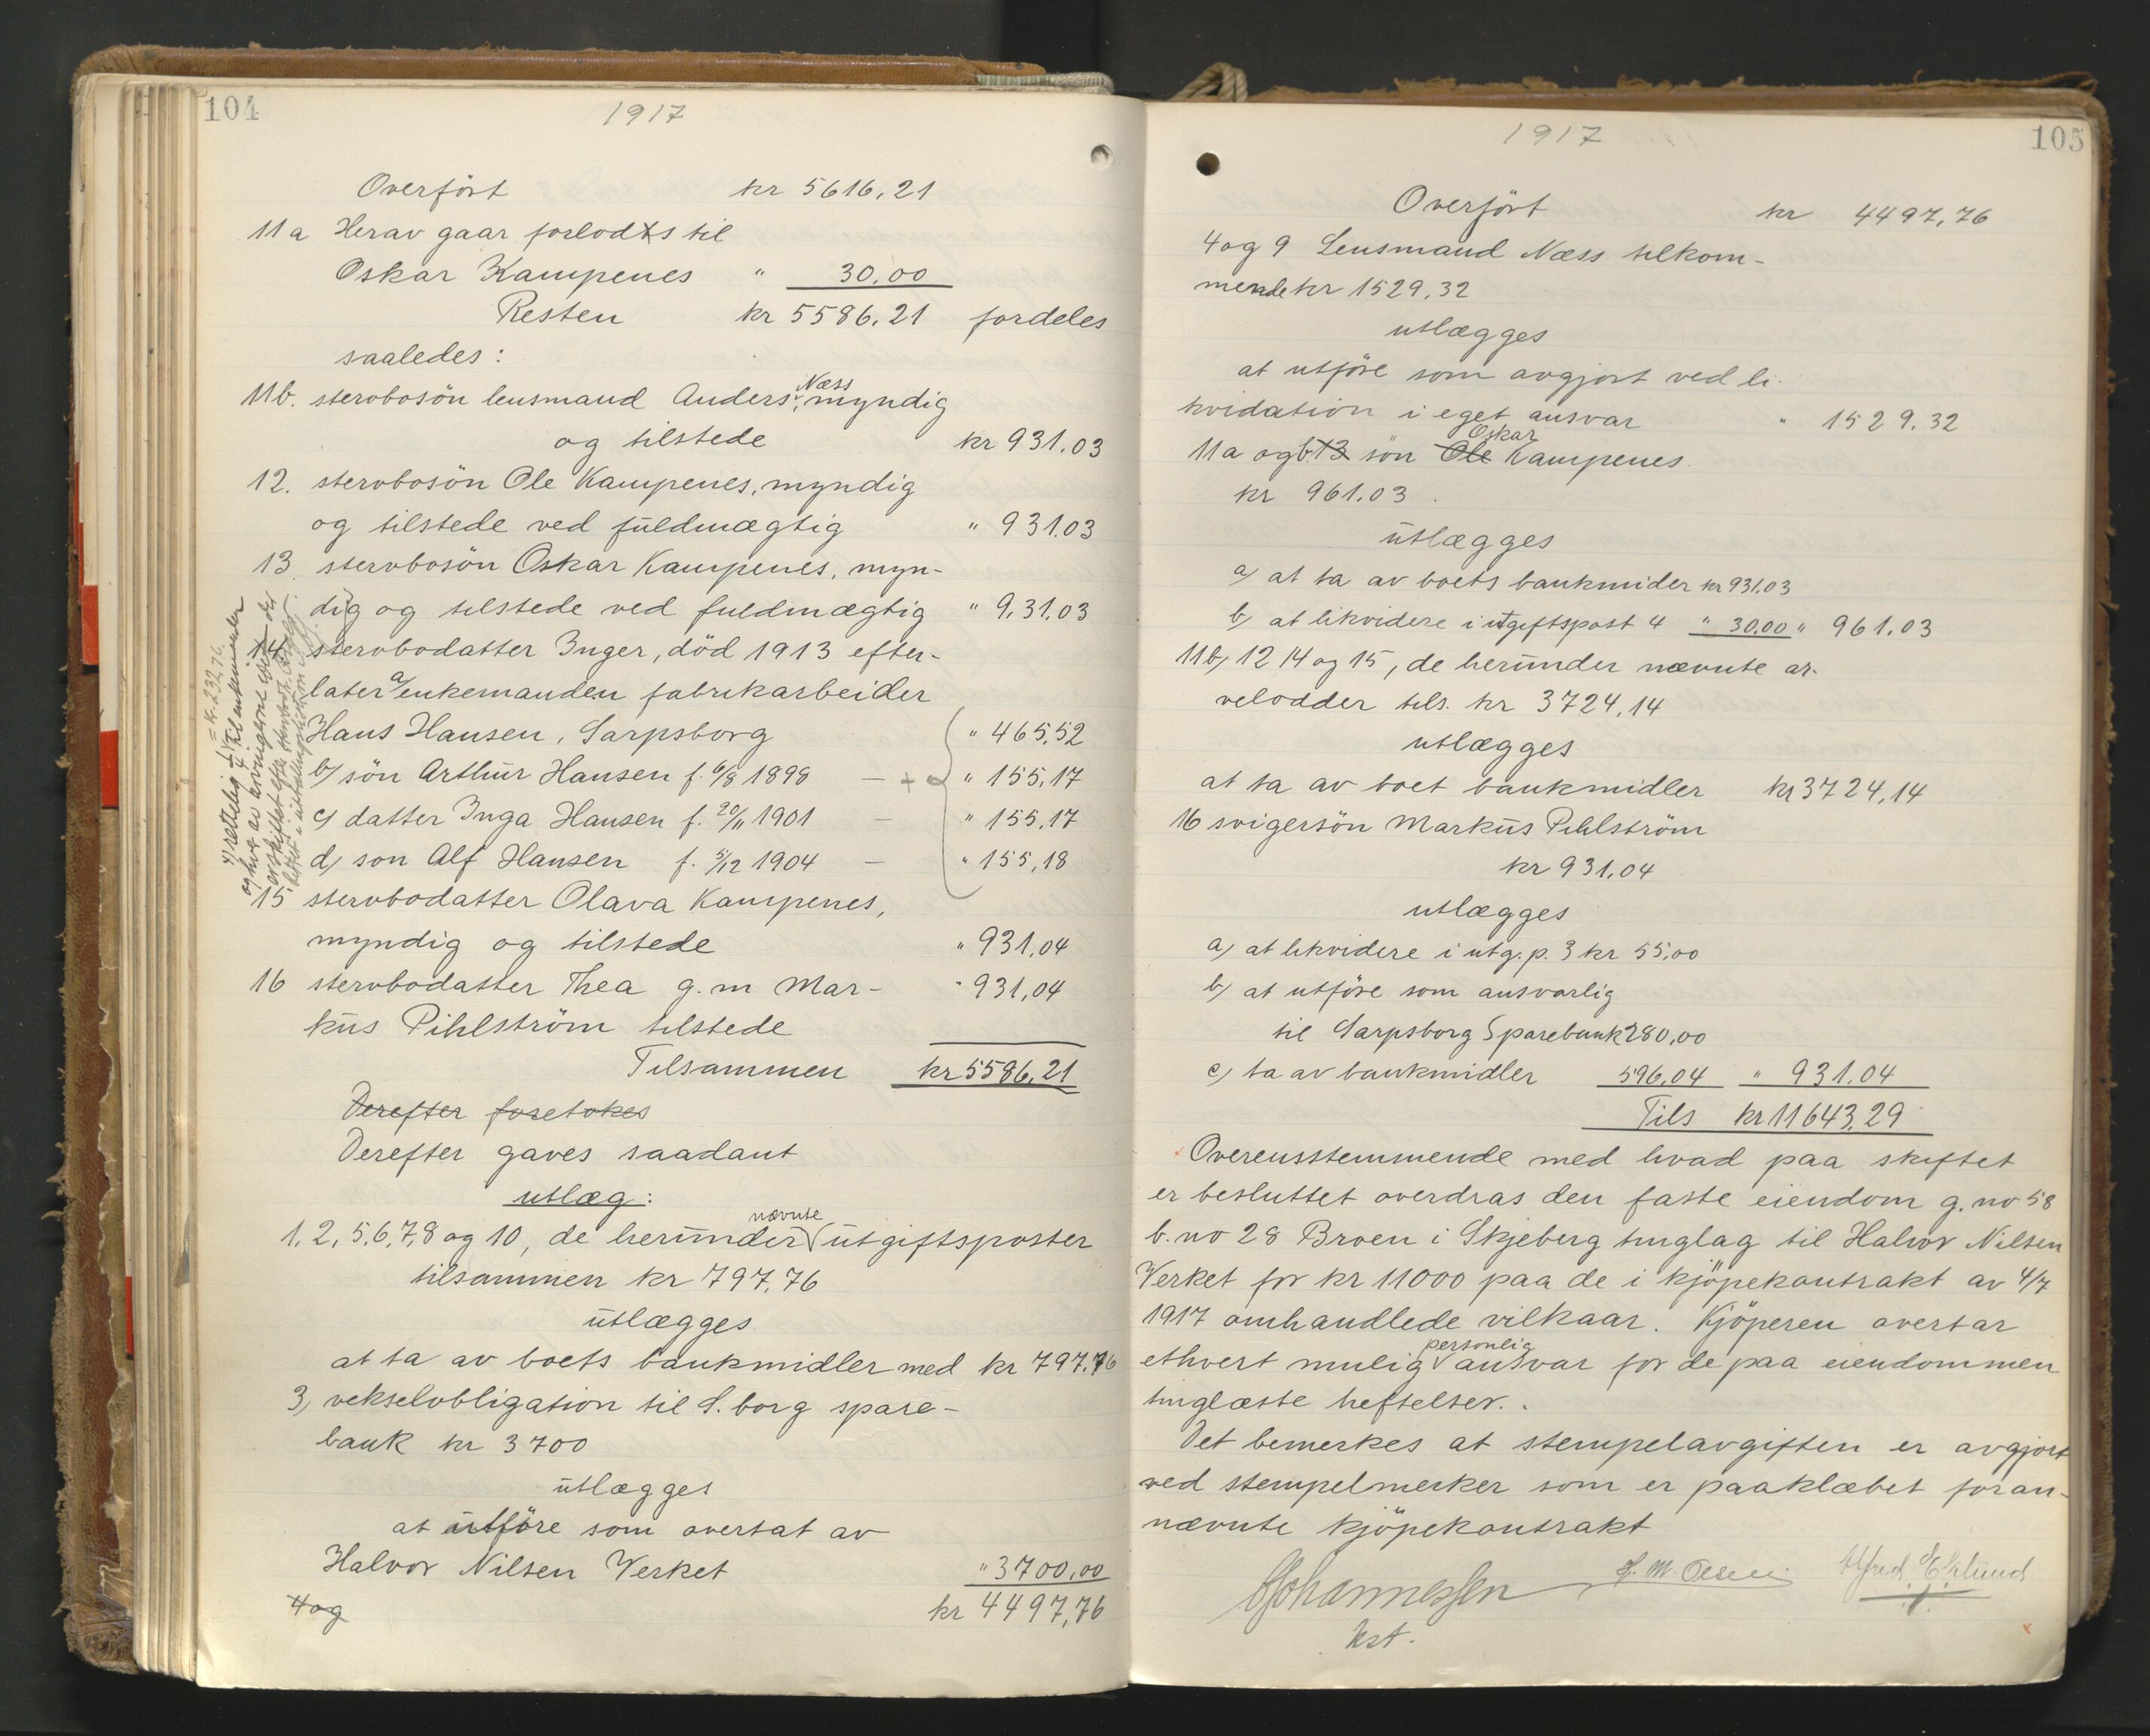 104
1917
Overført kr 5616,21
11 a Herav gaar forlods til
Oskar Kampenes " 30,00
Resten kr 5586,21 fordeles
saaledes:
11b. stervbosön lensmand Anders Næss, myndig
og tilstede kr 931.03
12. stervbosön Ole Kampenes, myndig
og tilstede ved fuldmægtig " 931.03
13. stervbosön Oskar Kampenes, myn-
dig og tilstede ved fuldmægtig " 9.31.03
14 stervbodatter Inger, död 1913 efter-
later a/ enkemanden fabrikarbeider
Hans Hansen, Sarpsborg " 465,52
b/ sön Arthur Hansen f. 6/8 1898 — + " 155,17
c/ datter Inga Hansen f. 20/11 1901 — " 155,17
d/ son Alf Hansen f. 5/12 1904 — " 155,18
15 stervbodatter Olava Kampenes,
myndig og tilstede " 931,04
16 stervbodatter Thea g. m Mar- " 931,04
kus Pihlström tilstede
Tilsammen kr 5586,21
Derefter foretokes
Derefter gaves saadant
utlæg:
1, 2, 5, 6, 7, 8 og 10, de herunder nævnte utgiftsposter
tilsammen kr 797,76
utlægges
at ta av boets bankmidler med kr 797.76
3, vekselobligation til S. borg spare-
bank kr 3700
utlægges
at utföre som overtat av
Halvor Nilsen Verket " 3700,00
4 og kr 4497,76
105
1917
Overfört kr 4497,76
4 og 9 Lensmand Næss tilkom-
mende kr 1529,32
utlægges
at utföre som avgjort ved li-
kvidation i eget ansvar " 1529.32
11 a og b. 13 sön Ole Oskar Kampenes
kr 961.03.
utlægges
a/ at ta av boets bankmider kr 931,03
b, at likvidere i utgiftspost 4 " 30,00 " 961.03
11 b, 12 14 og 15, de herunder nævnte ar-
velodder tils. kr 3724,14
utlægges
at ta av boet bankmidler kr 3724,14
16 svigersön Markus Pihlström
kr 931.04
utlægges
a, at likvidere i utg. p. 3 kr 55,00
b, at utföre som ansvarlig
til Sarpsborg Sparebank 280,00
c, ta av bankmidler 596,04 " 931.04
Tils kr 11643,29
Overensstemmende med hvad paa skiftet
er besluttet overdras den faste eiendom g. no 58
b. no 28 Broen i Skjeberg tinglag til Halvor Nilsen
Verket for kr 11000 paa de i kjöpekontrakt av 4/7
1917 omhandlede vilkaar. Kjöperen overtar
ethvert mulig personlig ansvar for de paa eiendommen
tinglæste heftelser.
Det bemerkes at stempelavgiften er avgjort
ved stempelmerker som er paaklæbet foran-
nævnte kjöpekontrakt
Johannessen
kst.